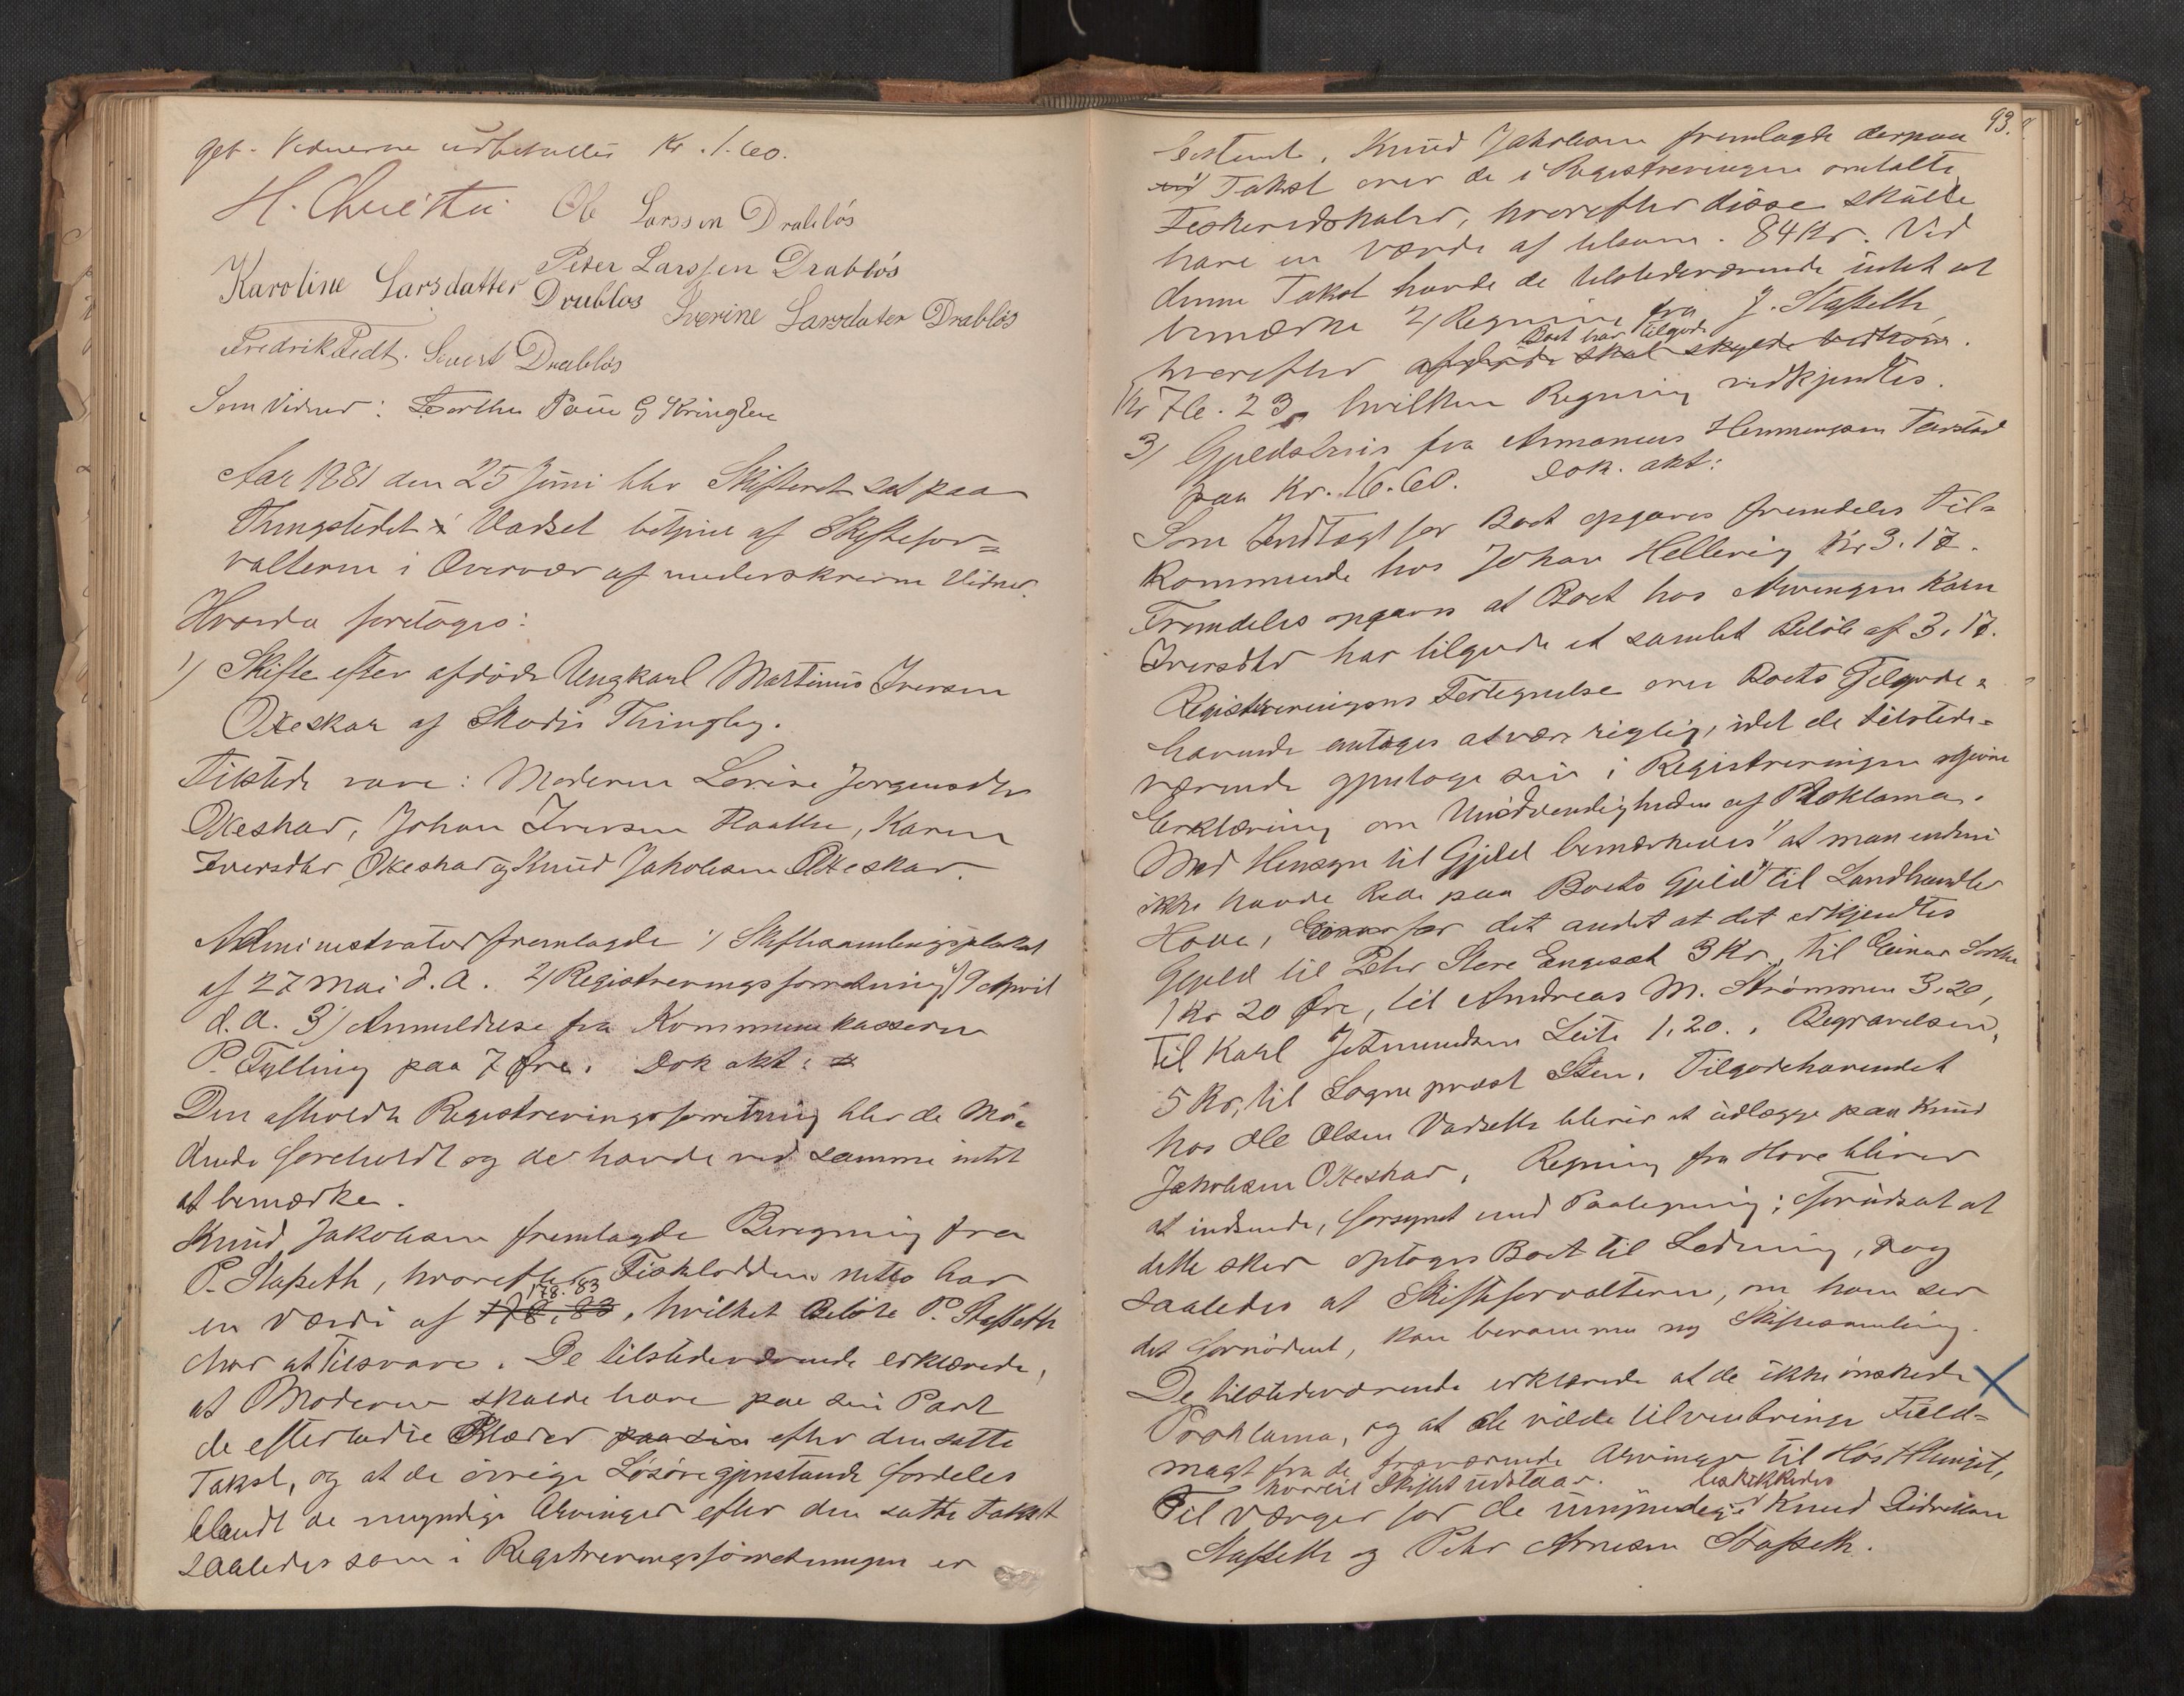 get. Vidnerne udbetaltes Kr. 1.60.
H. Christie Ole Larssen Drabløs
Karoline Larsdatter Drabløs Peter Larssen Drabløs
Iverine Larsdater Drabløs
Fredrik Tedt. Sivert Drabløs
Som Vidner: Paul G Kringlen
Aar 1881 den 25 Juni blev Skifteret sat paa
Thingstedet Vadset betjent af Skiftefor=
valteren i Overvær af underskrevne Vidner.
Hvorda foretoges:
1) Skifte efter afdøde Ungkarl Martinus Iversen
Oxeskar af Skodje Thinglag.
Tilstede vare: Moderen Lovise Jørgensdtr
Oxeskar, Johan Iversen, Karen
Iversdtr Oxeskar og Knud Jakobsen Oxeskar.
Administrator fremlagde 1) Skiftesamlingsplakat
af 27 Mai d. A. 2) Registreringsforretning af 9 April
d. A. 3) Anmeldelse fra Kommunekasserer
P. Tylling paa 7 Øre. Dok akt:
Den afholdte Registreringsforretning blev de Mø-
dende foreholdt og de havde ved samme intet
at bemærke.
Knud Jakobsen fremlagde Beregning fra
P. Stafseth, hvorefter Fiskelodden netto har
en Værdi af 178.83, hvilket Beløb P. Stafseth
har at tilsvare. De tilstedeværende erklærede,
at Moderen skulde have paa sin Part
de efterladte Klæder paa sin efter den satte
Takst, og at de øvrige Løsøregjenstande fordeles
blandt de myndige Arvinger efter den satte Takst
saaledes som i Registreringsforretningen er
93.
bestemt. Knud Jakobsen fremlagde derpaa
1) Takst over de i Registreringen omtalte
Fiskeredskaber, hvorefter disse skulde
have en Værdi af tilsam. 84 Kr. Ved
denne Takst havde de tilstedeværende intet at
bemærke 2) Regning fra J. Stafseth
hvorefter afdøde skal skylde Boet har tilgode
Kr 76.23, hvilken Regning vedkjendtes.
3) Gjeldsbevis fra Henningsen
paa Kr. 16.60. Dok. akt:
Som Indtægt for Boet opgaves fremdeles Til=
kommende hos Johan Hellevig Kr 3.17.
Fremdeles opgaves at Boet hos Arvingen Karen
Iversdtr har tilgode et samlet Beløb af 3.17.
Registreringens Fortegnelse over Boets Tilgode=
havende antoges at være rigtig, idet de tilstede=
værende gjentoge sin i Registreringen afgivne
Erklæring om Unødvendigheden af Proklama.
Med Hensyn til Gjeld bemærkedes at man endnu
ikke havde Rede paa Boets Gjeld til Landhandler
Hove, for det andet at det erkjendtes
Gjeld til Peter Steve Engeset 3 Kr, til Einar
1 Kr 20 Øre, til Andreas M. Strømmen 3.20,
til Karl Jetmundsen Leite 1.20., Begravelsen,
5 Kr, til Sogneprest Steen. Tilgodehavendet
hos Ole Olsen Vadseth bliver at udlægge paa Knud
Jakobsen Oxeskar, Regning fra Hove bliver
at indsende, forsynet med Paategning; forudsat at
dette sker optoges Boet til Ledning, dog
saaledes at Skifteforvalteren, om han ser
det fornødent, kan beramme ny Skiftesamling.
De tilstedeværende erklærede at de ikke ønskede
Proklama, og at de vilde tilveiebringe Fuld=
magt fra de fraværende Arvinger til Høstthinget,
hvortil Skiftet udstaar. beskikkedes
Til Værger for de umyndige Knud Didriksen
Stafseth og Peter Arnesen Stafseth.